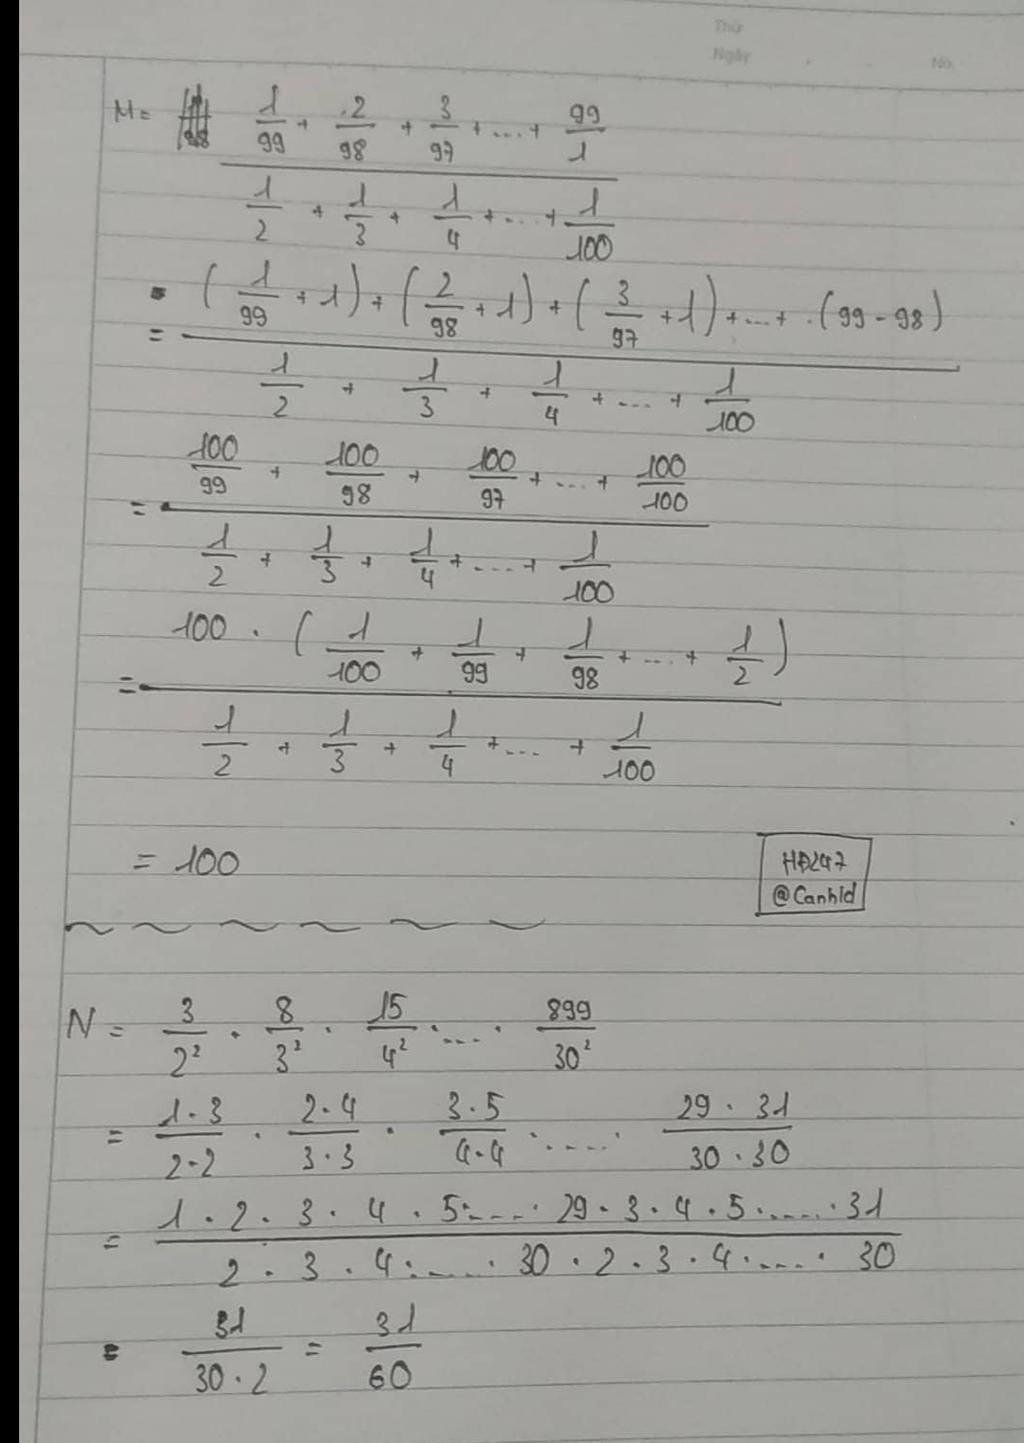 Thứ
Ngày . . No.
M = \frac{\frac{1}{99} + \frac{2}{98} + \frac{3}{97} + ... + \frac{99}{1}}{\frac{1}{2} + \frac{1}{3} + \frac{1}{4} + ... + \frac{1}{100}}
= \frac{(\frac{1}{99} + 1) + (\frac{2}{98} + 1) + (\frac{3}{97} + 1) + ... + (99 - 98)}{\frac{1}{2} + \frac{1}{3} + \frac{1}{4} + ... + \frac{1}{100}}
= \frac{\frac{100}{99} + \frac{100}{98} + \frac{100}{97} + ... + \frac{100}{100}}{\frac{1}{2} + \frac{1}{3} + \frac{1}{4} + ... + \frac{1}{100}}
= \frac{100 . (\frac{1}{100} + \frac{1}{99} + \frac{1}{98} + ... + \frac{1}{2})}{\frac{1}{2} + \frac{1}{3} + \frac{1}{4} + ... + \frac{1}{100}}
= 100
HĐ247
@Canhid
N = \frac{3}{2^2} . \frac{8}{3^2} . \frac{15}{4^2} . ... . \frac{899}{30^2}
= \frac{1.3}{2.2} . \frac{2.4}{3.3} . \frac{3.5}{4.4} . .... . \frac{29.31}{30.30}
= \frac{1.2.3.4.5. ... .29.3.4.5. .... .31}{2.3.4. .... .30.2.3.4. .... .30}
= \frac{31}{30.2} = \frac{31}{60}